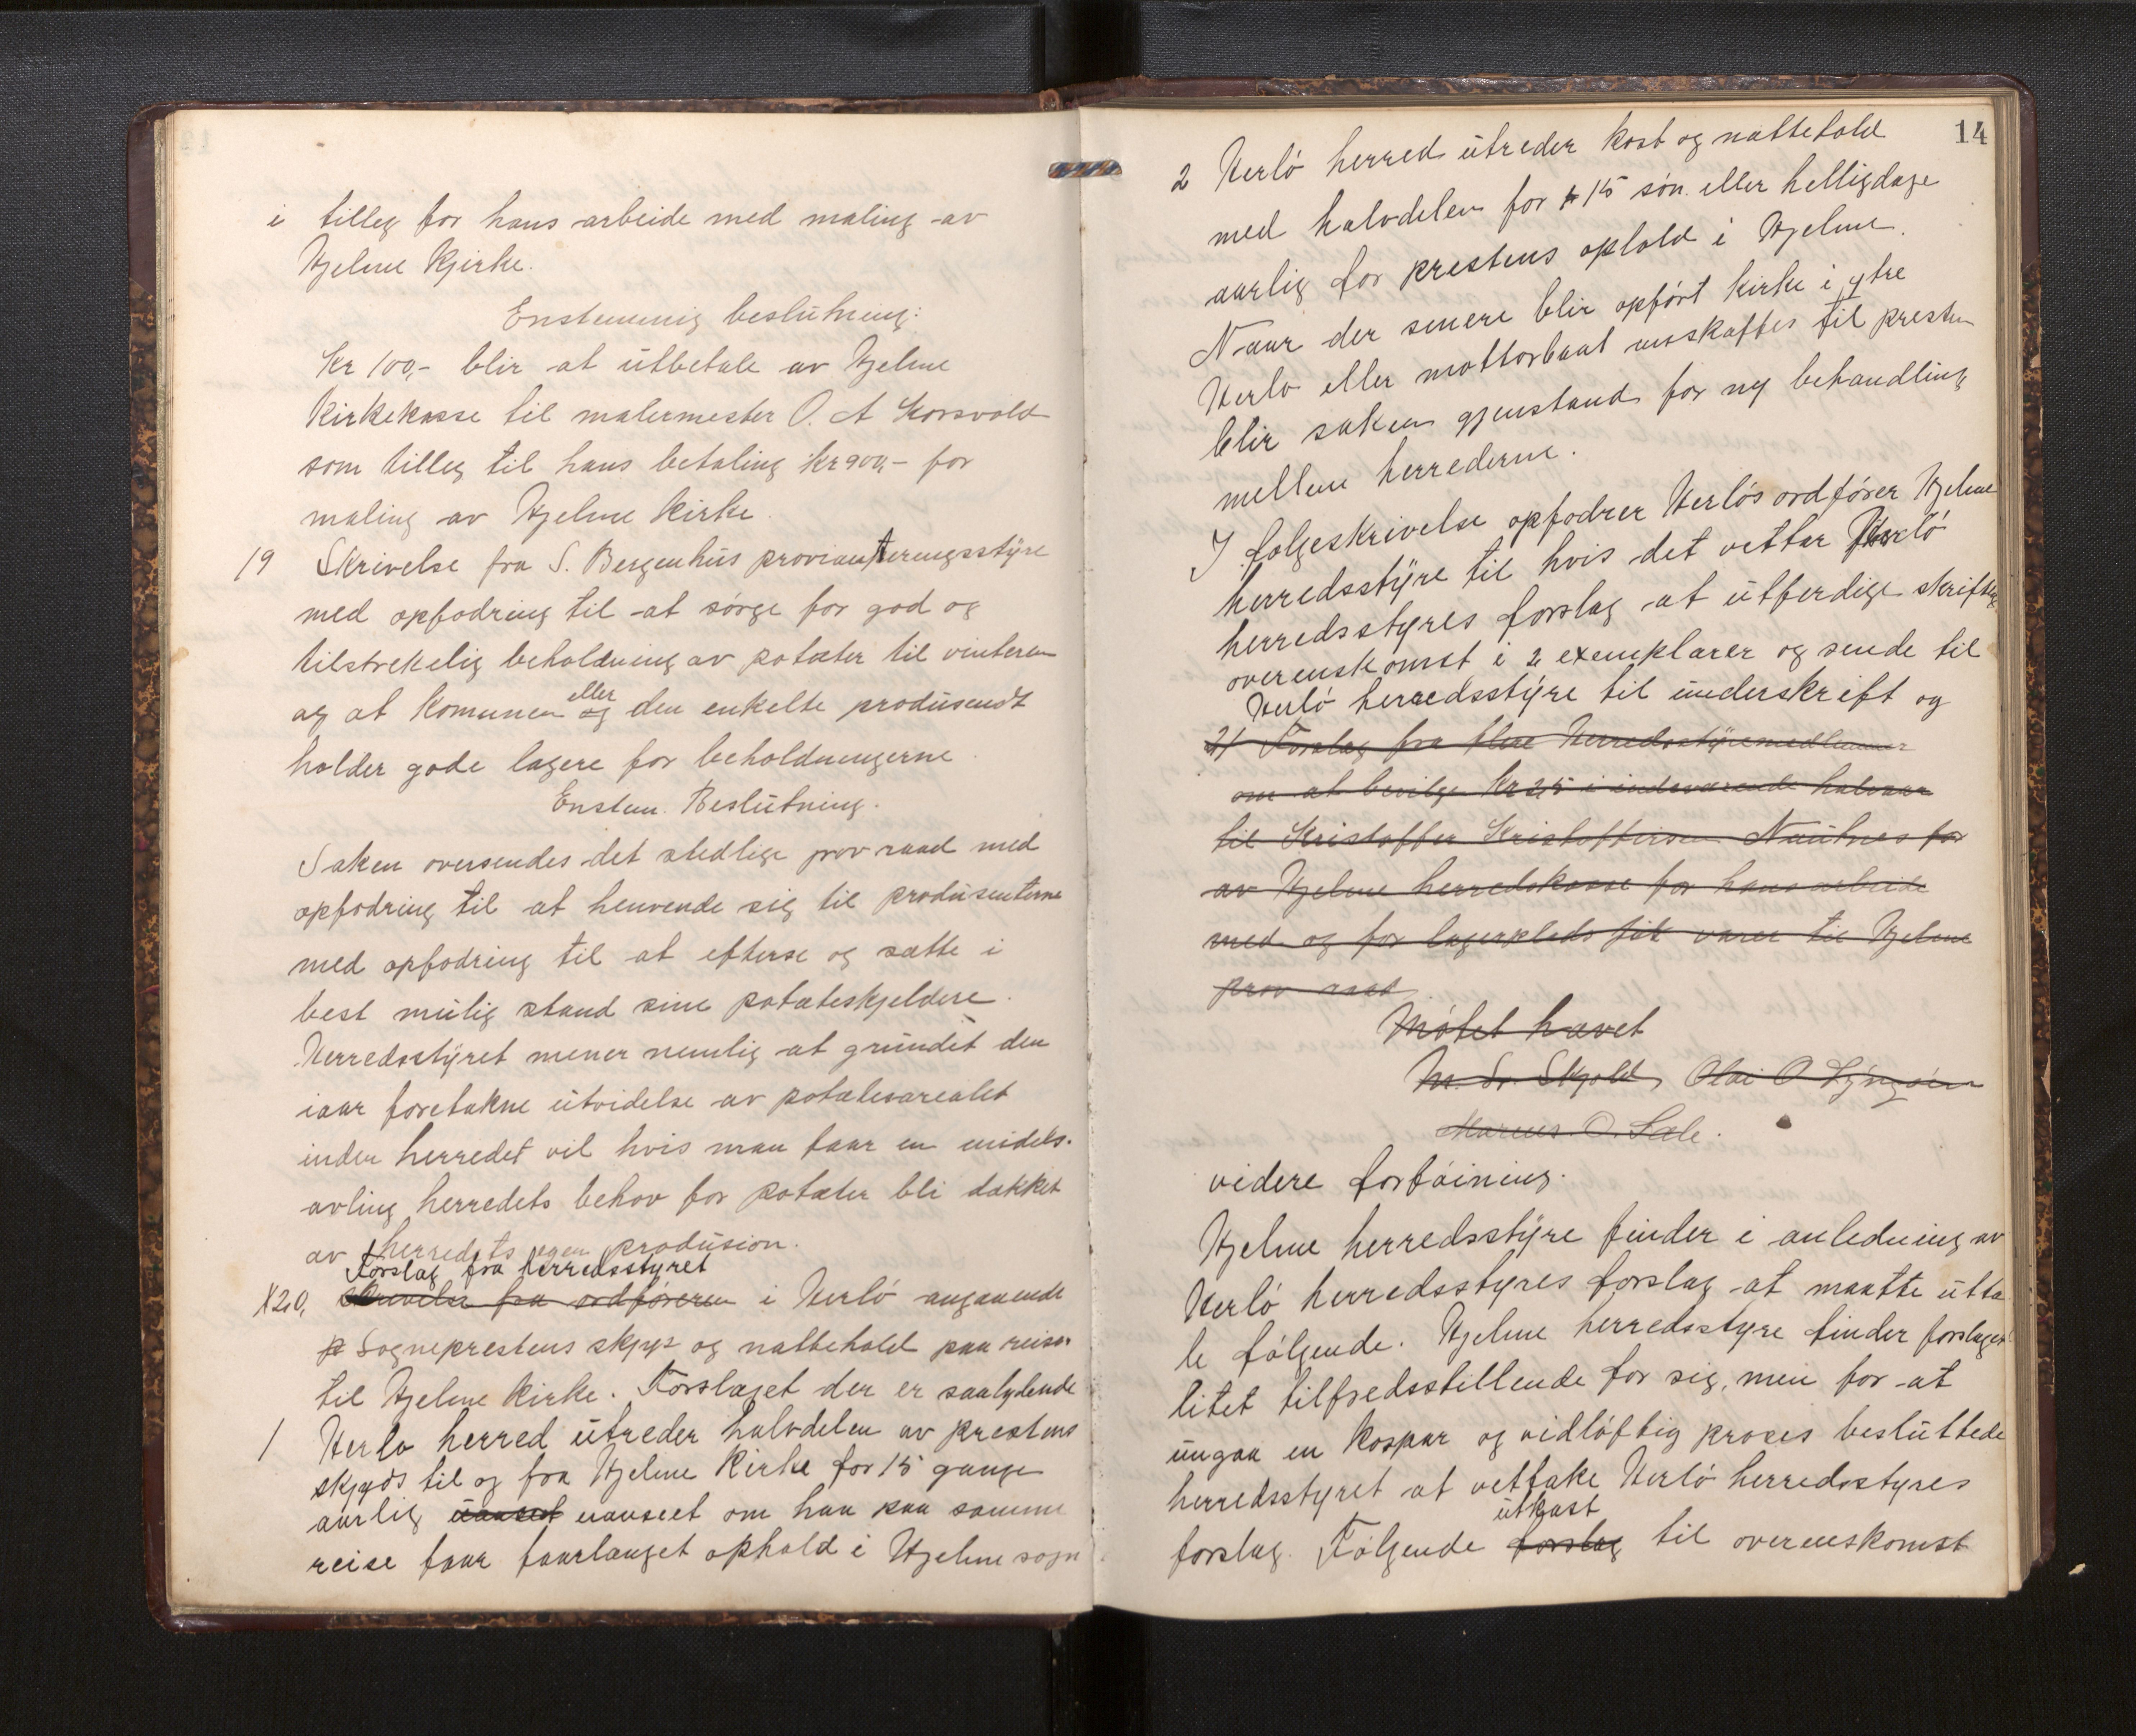 i tilleg for hans arbeide med maling av
Hjelme Kjirke.
Enstemmig beslutning:
Kr 100,- blir at utbetale av Hjelme
Kirkekasse til malermester O. A Korsvold
som tilleg til hans betaling kr 900,- for
maling av Hjelme Kirke.
19 Skrivelse fra S. Bergenhus provianteringsstyre
med opfodring til at sørge for god og
tilstrekelig beholdning av potæter til vinteren
eller
og at Komunen og den enkelte produsendt
holder gode lagere for beholdningerne.
Enstem. Beslutning.
Saken oversendes det stedlige prov raad med
opfodring til at henvende sig til produsenterne
med opfodring til at efterse og sætte i
best mulig stand sine potæteskjeldere.
Herredsstyret mener nemlig at grundet den
iaar foretakne utvidelse av potetesarealet
inden herredet vil hvis man faar en midels.
avling herredets behov for potæter bli dækket
av herredets egen produsion.
Forslag fra herredsstyret
X20, Skrivelse fra ordføreren i Herlø angaaende
p Sogneprestens skyss og nattehold paa reiser
til Hjelme Kirke. Forslaget der er saalydende
1 Herlø herred utreder halvdelen av prestens
skyds til og fra Hjelme Kirke for 15 gange
aarlig uanset uanseet om han paa samme
reise faar faarlanget ophold i Hjelme sogn
14
2 Herlø herred utreder kost og nattehold
med halvdelen for 15 søn. eller helligdage
aarlig for prestens ophold i Hjelme.
Naar der senere blir opført kirke i ytre
Herlø eller mottorbaat anskaffes til presten
blir saken gjenstand for ny behandling
mellem herrederne.
I følgeskrivelse opfodrer Herløs ordfører Hjelme
herredsstyre til hvis det vettar Herlø
herredsstyres forslag at utferdige skriftlig
overenskomst i 2 exemplarer og sende til
Herlø herredsstyre til underskrift og
21 Forslag fra flere Herredsstyremedlemmer
om at bevilge Kr 25 i indeværende halvaar
til Kristoffer Kristoffersen Nautnes for
av Hjelme herredskasse for hans arbeide
med og for lagerplads for varer til Hjelme
prov raad
Møtet hævet
M. Sr. Skjold, Olai O
Marcus. O. Sæle.
videre forføining.
Hjelme herredsstyre finder i anledning av
Herlø herredsstyres forslag at maatte utta
le følgende. Hjelme herredsstyre finder forslaget
litet tilfredsstillende for sig, men for at
ungaa en kospar og vidløftig proses besluttede
herredsstyret at vettake Herlø herredsstyres
utkast
forslag. Følgende forslag til overenskomst